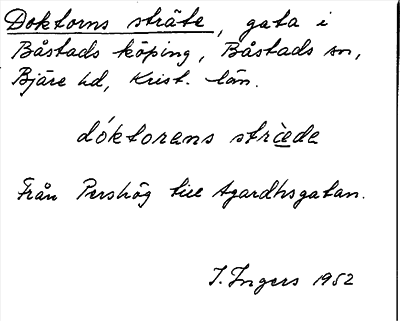 Doktorns sträte, gata i
Båstads köping, Båstads sn,
Bjäre hd, Krist. län.
dóktorens stræ̀de
Från Pershög till Agardhsgatan.
I. Ingers 1952